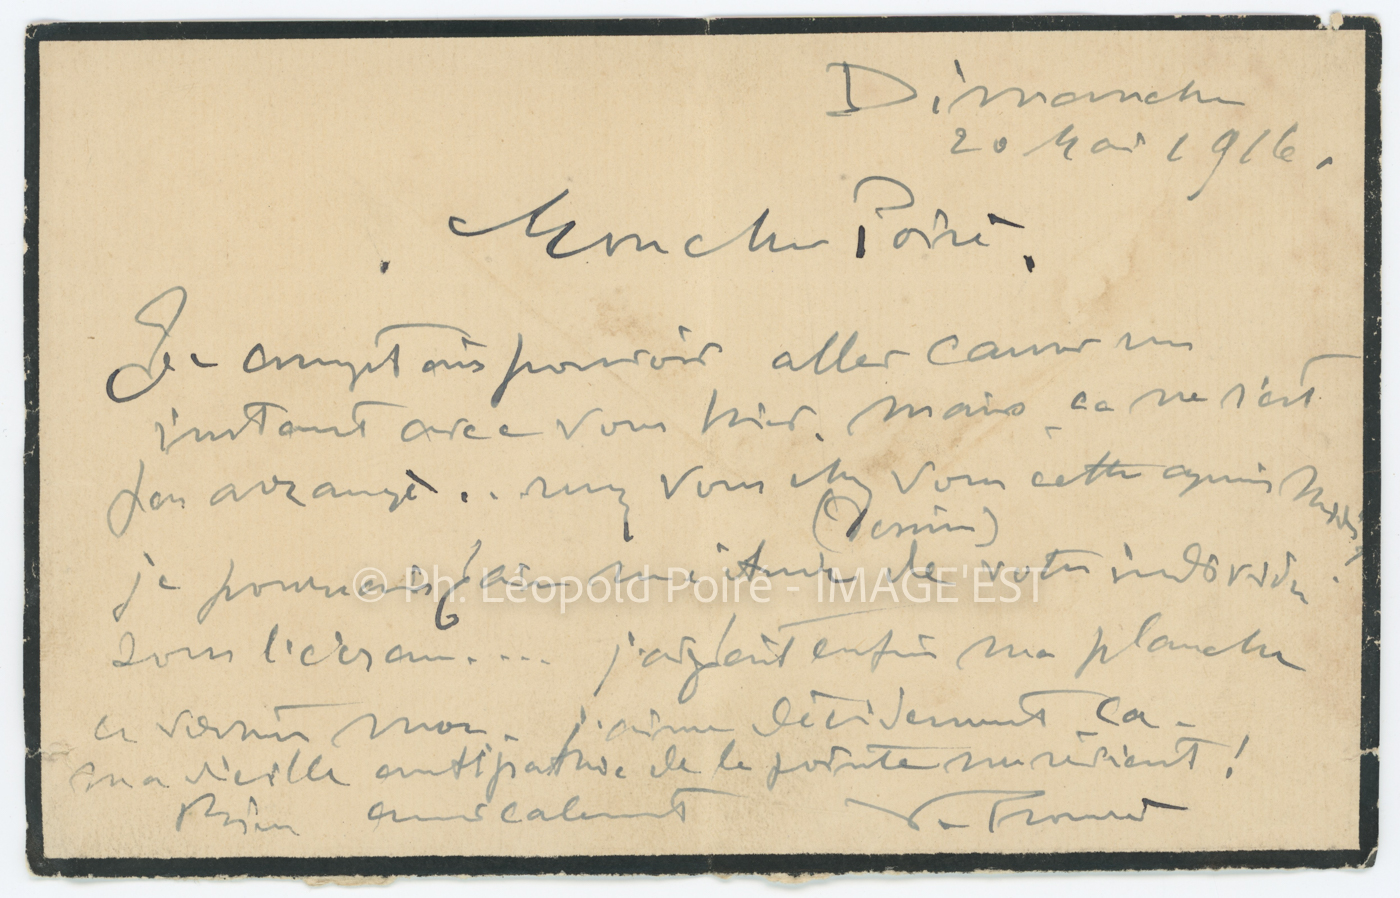 Dimanche
20 Mai 1916.
Mon cher Poiré,
Je comptais pouvoir aller causer un
instant avec vous hier, mais ça ne s'est
pas arrangé... chez vous cette après midi,
(Dessin)
je pourrais faire de votre individu
© Ph. Léopold Poiré - IMAGE'EST
sous l'écran.... j'ai fait enfin ma planche
au vernis mou. j'aime décidément ça -
ma vieille antipathie de la pointe me revient !
Bien amicalement V. Prouvé